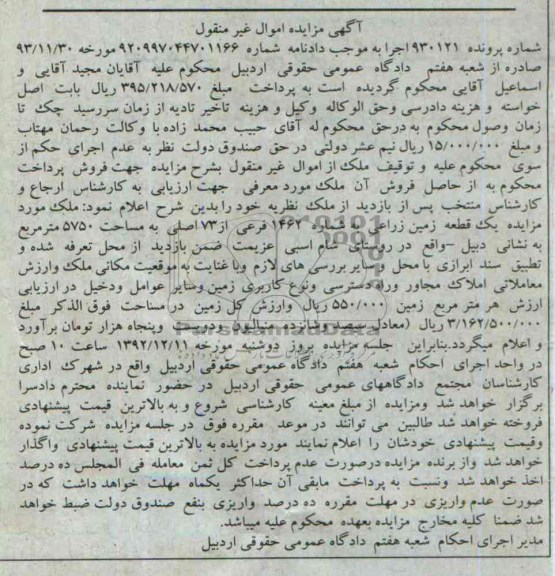 آگهی مزایده اموال غیر منقول
شماره پرونده ۹۳۰۱۲۱ اجرا به موجب دادنامه شماره ۹۲۰۹۹۷۰۴۴۷۰۱۱۶۶ مورخه ۹۳/۱۱/۳۰
صادره از شعبه هفتم دادگاه عمومی حقوقی اردبیل محکوم علیه آقایان مجید آقایی و
اسماعیل آقایی محکوم گردیده است به پرداخت مبلغ ۳۹۵/۲۱۸/۵۷۰ ریال بابت اصل
خواسته و هزینه دادرسی وحق الوکاله وکیل و هزینه تاخیر تادیه از زمان سررسید چک تا
زمان وصول محکوم به درحق محکوم له آقای حبیب محمد زاده با وکالت رحمان مهتاب
و مبلغ ۱۵/۰۰۰/۰۰۰ ریال نیم عشر دولتی در حق صندوق دولت نظر به عدم اجرای حکم از
سوی محکوم علیه و توقیف ملک از اموال غیر منقول بشرح مزایده جهت فروش پرداخت
محکوم به از حاصل فروش آن ملک مورد معرفی جهت ارزیابی به کارشناس ارجاع و
کارشناس منتخب پس از بازدید از ملک نظریه خود را بدین شرح اعلام نمود: ملک مورد
مزایده یک قطعه زمین زراعی به شماره ۱۴۶۲ فرعی از ۷۳ اصلی به مساحت ۵۷۵۰ مترمربع
به نشانی دبیل –واقع در روستای شام اسبی عزیمت ضمن بازدید از محل تعرفه شده و
تطبیق سند ابرازی با محل و سایر بررسی های لازم وبا غنایت به موقعیت مکانی ملک وارزش
معاملاتی املاک مجاور وراه دسترسی ونوع کاربری زمین وسایر عوامل ودخیل در ارزیابی
ارزش هر متر مربع زمین ۵۵۰/۰۰۰ ریال وارزش کل زمین در مساحت فوق الذکر مبلغ
۳/۱۶۲/۵۰۰/۰۰۰ ریال (معادل سیصد وشانزده میلیون ودویست وپنجاه هزار تومان برآورد
و اعلام میگردد.بنابراین جلسه مزایده بروز دوشنبه مورخه ۱۳۹۲/۱۲/۱۱ ساعت ۱۰ صبح
در واحد اجرای احکام شعبه هفتم دادگاه عمومی حقوقی اردبیل واقع در شهرک اداری
کارشناسان مجتمع دادگاههای عمومی حقوقی اردبیل در حضور نماینده محترم دادسرا
برگزار خواهد شد ومزایده از مبلغ معینه کارشناسی شروع و به بالاترین قیمت پیشنهادی
فروخته خواهد شد طالبین می توانند در موعد مقرره فوق در جلسه مزایده شرکت نموده
وقیمت پیشنهادی خودشان را اعلام نمایند مورد مزایده به بالاترین قیمت پیشنهادی واگذار
خواهد شد واز برنده مزایده درصورت عدم پرداخت کل ثمن معامله فی المجلس ده درصد
اخذ خواهد شد ونسبت به پرداخت مابقی آن حداکثر یکماه مهلت خواهد داشت که در
صورت عدم واریزی در مهلت مقرره ده درصد واریزی بنفع صندوق دولت ضبط خواهد
شد ضمنا کلیه مخارج مزایده بعهده محکوم علیه میباشد.
مدیر اجرای احکام شعبه هفتم دادگاه عمومی حقوقی اردبیل